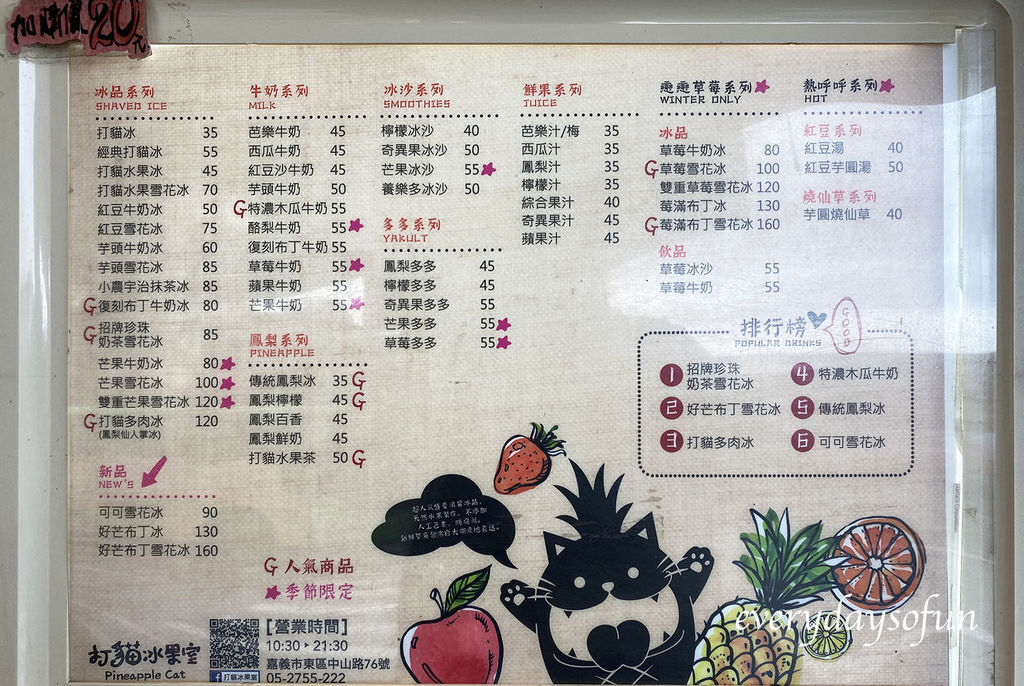 加購價20元
冰品系列
SHAVED ICE
打貓冰 35
經典打貓冰 55
打貓水果冰 45
打貓水果雪花冰 70
紅豆牛奶冰 50
紅豆雪花冰 75
芋頭牛奶冰 60
芋頭雪花冰 85
小農宇治抹茶冰 85
G復刻布丁牛奶冰 80
G招牌珍珠
奶茶雪花冰 85
芒果牛奶冰 80
芒果雪花冰 100
雙重芒果雪花冰 120
G打貓多肉冰 120
(鳳梨仙人掌冰)
新品
NEW'S
可可雪花冰 90
好芒布丁冰 130
好芒布丁雪花冰 160
牛奶系列
MILK
芭樂牛奶 45
西瓜牛奶 45
紅豆沙牛奶 45
芋頭牛奶 50
G特濃木瓜牛奶 55
酪梨牛奶 55
復刻布丁牛奶 55
草莓牛奶 55
蘋果牛奶 55
芒果牛奶 55
鳳梨系列
PINEAPPLE
傳統鳳梨冰 35 G
鳳梨檸檬 45 G
鳳梨百香 45
鳳梨鮮奶 45
打貓水果茶 50 G
冰沙系列
SMOOTHIES
檸檬冰沙 40
奇異果冰沙 50
芒果冰沙 55
養樂多冰沙 50
多多系列
YAKULT
鳳梨多多 45
檸檬多多 45
奇異果多多 55
芒果多多 55
草莓多多 55
鮮果系列
JUICE
芭樂汁/梅 35
西瓜汁 35
鳳梨汁 35
檸檬汁 35
綜合果汁 40
奇異果汁 45
蘋果汁 45
草莓系列
WINTER ONLY
冰品
草莓牛奶冰 80
G草莓雪花冰 100
雙重草莓雪花冰 120
莓滿布丁冰 130
G莓滿布丁雪花冰 160
飲品
草莓冰沙 55
草莓牛奶 55
熱呼呼系列
HOT
紅豆系列
紅豆湯 40
紅豆芋圓湯 50
燒仙草系列
芋圓燒仙草 40
排行榜
POPULAR DRINKS
GOOD
1 招牌珍珠
奶茶雪花冰
2 好芒布丁雪花冰
3 打貓多肉冰
4 特濃木瓜牛奶
5 傳統鳳梨冰
6 可可雪花冰
G 人氣商品
季節限定
打貓冰果室
Pineapple Cat
f 打貓冰果室
[營業時間]
10:30 ▸ 21:30
嘉義市東區中山路76號
05-2755-222
everydaysofun